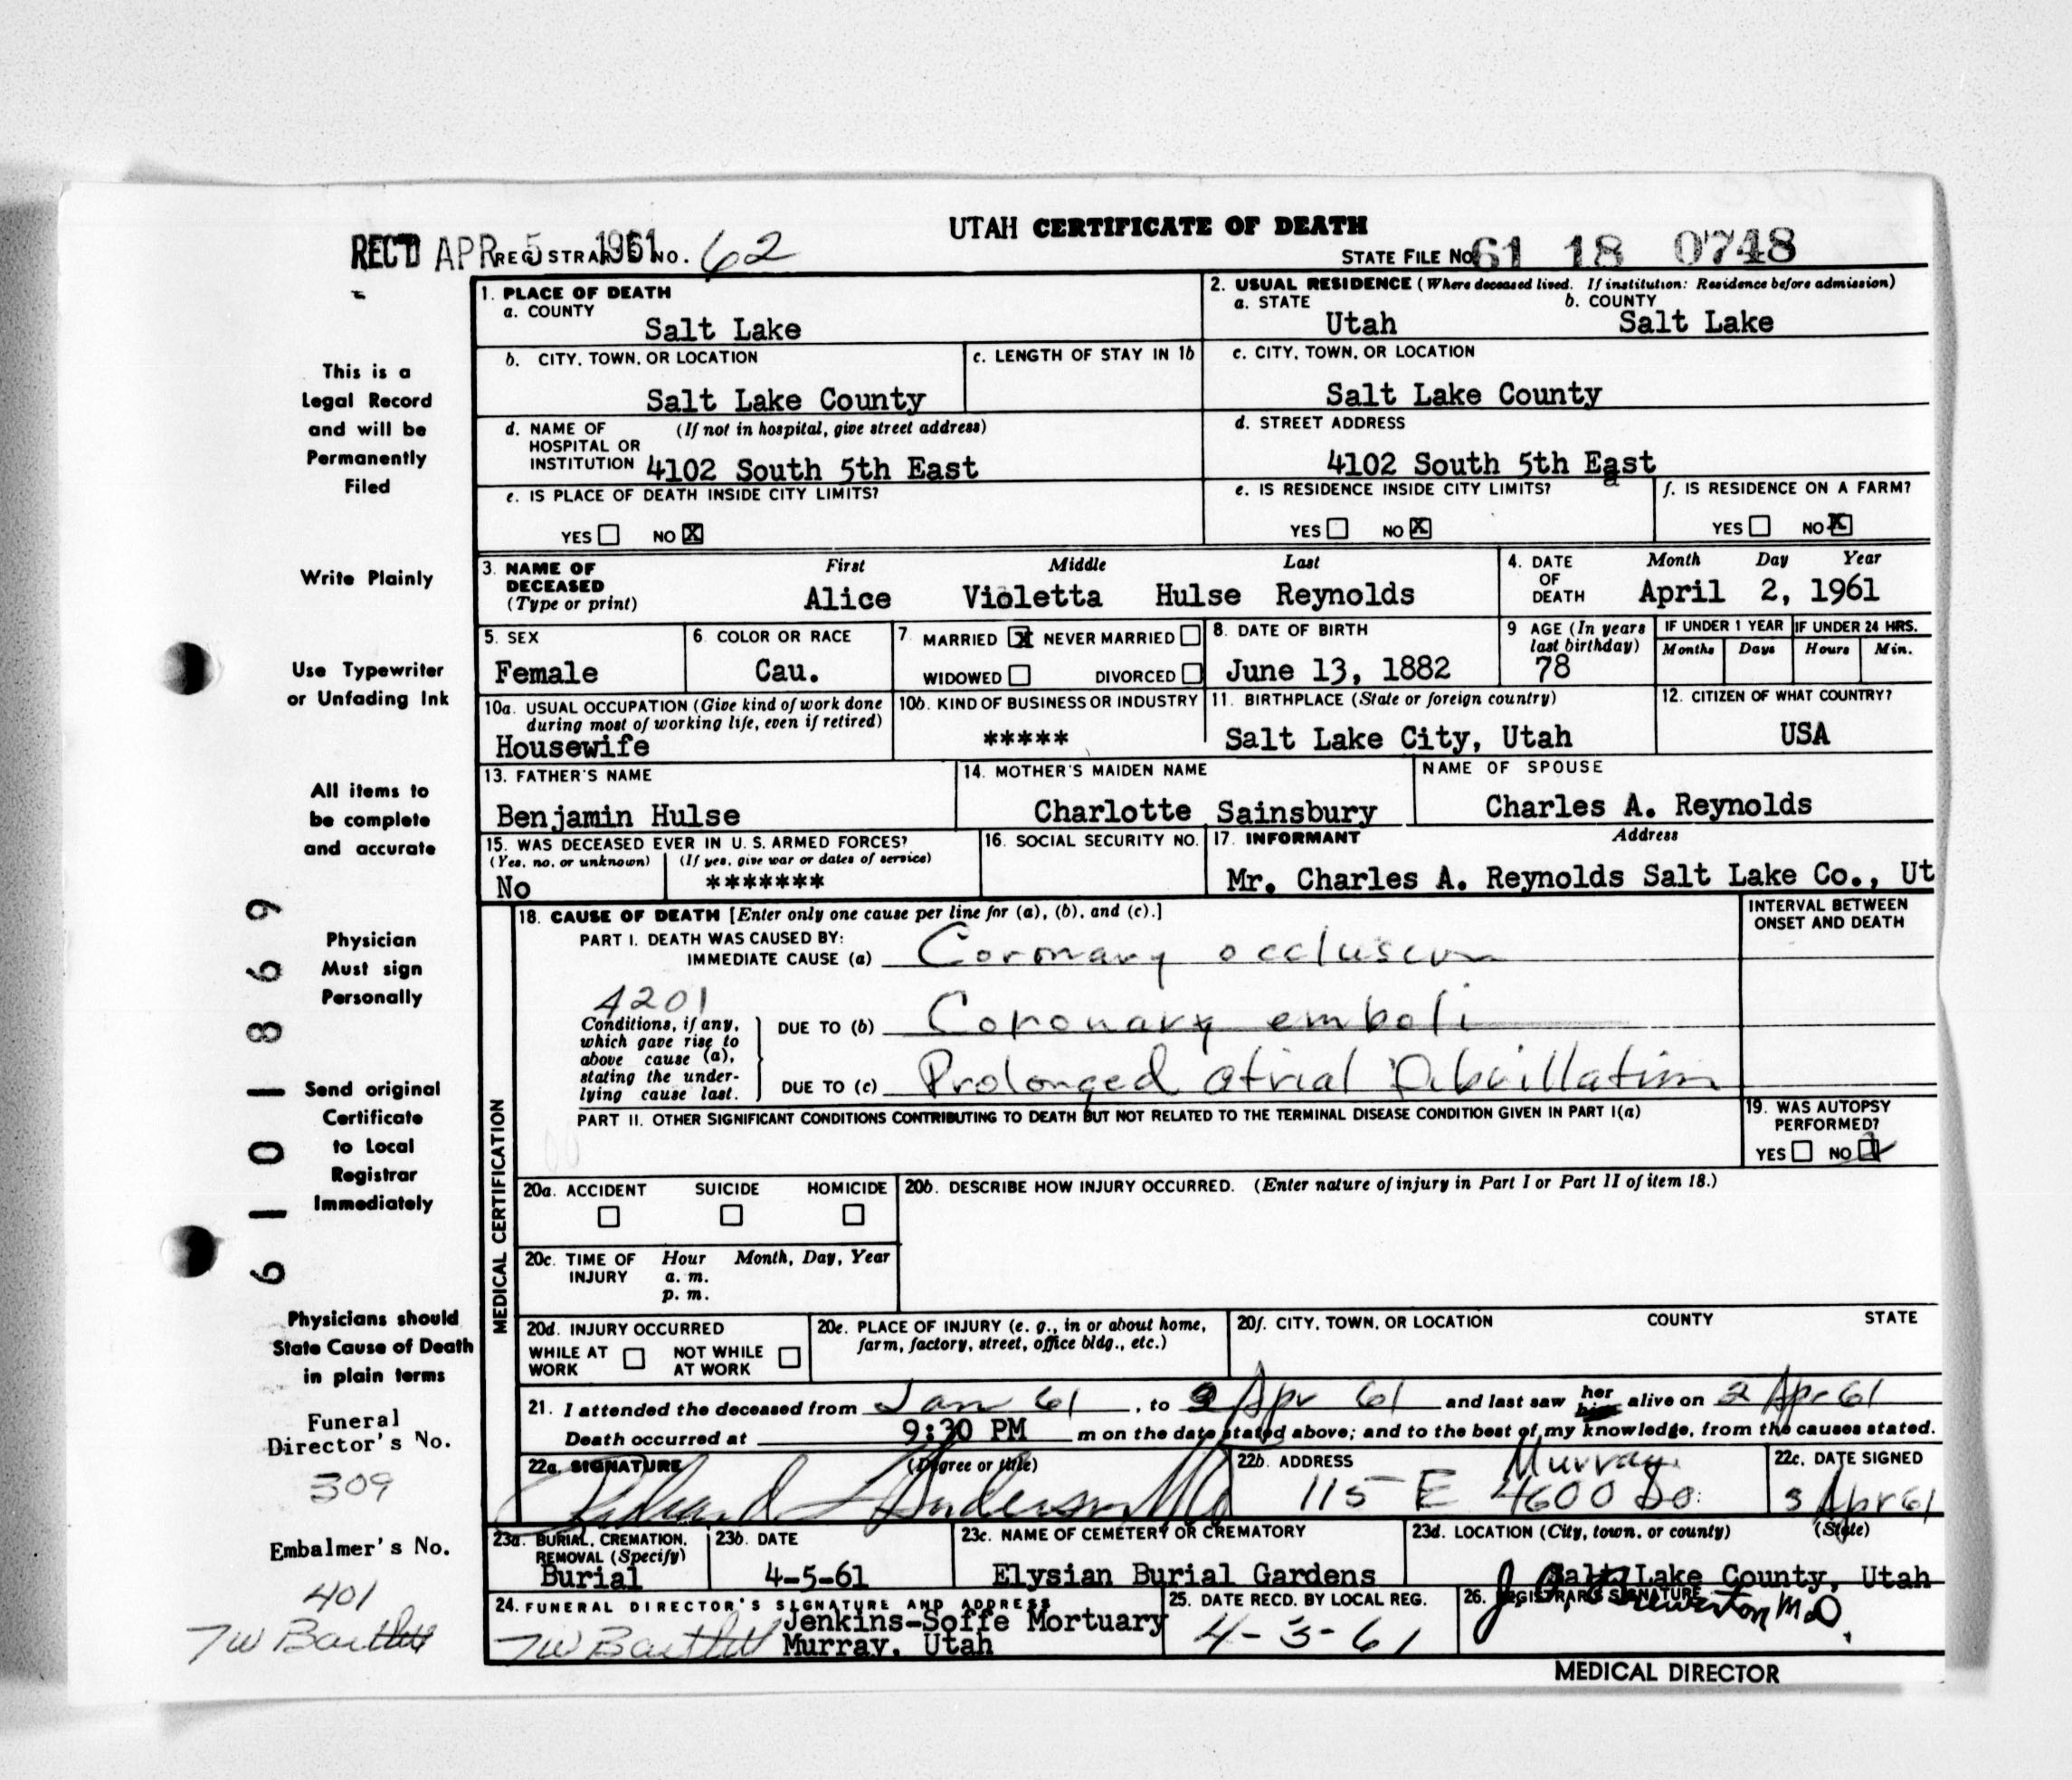 UTAH CERTIFICATE OF DEATH
REC'D APR 5 1961 REGISTRAR'S NO. 62
STATE FILE NO. 61 18 0748
1. PLACE OF DEATH
a. COUNTY
Salt Lake
2. USUAL RESIDENCE (Where deceased lived. If institution: Residence before admission)
a. STATE b. COUNTY
Utah Salt Lake
b. CITY, TOWN, OR LOCATION
Salt Lake County
c. LENGTH OF STAY IN 1b
c. CITY, TOWN, OR LOCATION
Salt Lake County
d. NAME OF (If not in hospital, give street address)
HOSPITAL OR
INSTITUTION 4102 South 5th East
d. STREET ADDRESS
4102 South 5th East
e. IS PLACE OF DEATH INSIDE CITY LIMITS?
YES NO X
e. IS RESIDENCE INSIDE CITY LIMITS?
YES NO X
f. IS RESIDENCE ON A FARM?
YES NO X
3. NAME OF First Middle Last
DECEASED
(Type or print) Alice Violetta Hulse Reynolds
4. DATE Month Day Year
OF
DEATH April 2, 1961
5. SEX
Female
6. COLOR OR RACE
Cau.
7. MARRIED X NEVER MARRIED
WIDOWED DIVORCED
8. DATE OF BIRTH
June 13, 1882
9 AGE (In years
last birthday)
78
IF UNDER 1 YEAR IF UNDER 24 HRS.
Months Days Hours Min.
10a. USUAL OCCUPATION (Give kind of work done
during most of working life, even if retired)
Housewife
10b. KIND OF BUSINESS OR INDUSTRY
*****
11. BIRTHPLACE (State or foreign country)
Salt Lake City, Utah
12. CITIZEN OF WHAT COUNTRY?
USA
13. FATHER'S NAME
Benjamin Hulse
14. MOTHER'S MAIDEN NAME
Charlotte Sainsbury
NAME OF SPOUSE
Charles A. Reynolds
15. WAS DECEASED EVER IN U. S. ARMED FORCES?
(Yes, no, or unknown) (If yes, give war or dates of service)
No *******
16. SOCIAL SECURITY NO.
17. INFORMANT Address
Mr. Charles A. Reynolds Salt Lake Co., Ut
MEDICAL CERTIFICATION
18. CAUSE OF DEATH [Enter only one cause per line for (a), (b), and (c).]
PART I. DEATH WAS CAUSED BY:
IMMEDIATE CAUSE (a) Coronary occlusion
4201
Conditions, if any,
which gave rise to
above cause (a),
stating the under-
lying cause last.
DUE TO (b) Coronary emboli
DUE TO (c) Prolonged atrial fibrillation
INTERVAL BETWEEN
ONSET AND DEATH
PART II. OTHER SIGNIFICANT CONDITIONS CONTRIBUTING TO DEATH BUT NOT RELATED TO THE TERMINAL DISEASE CONDITION GIVEN IN PART I(a)
19. WAS AUTOPSY
PERFORMED?
YES NO
20a. ACCIDENT SUICIDE HOMICIDE
20b. DESCRIBE HOW INJURY OCCURRED. (Enter nature of injury in Part I or Part II of item 18.)
20c. TIME OF Hour Month, Day, Year
INJURY a. m.
p. m.
20d. INJURY OCCURRED
WHILE AT NOT WHILE
WORK AT WORK
20e. PLACE OF INJURY (e. g., in or about home,
farm, factory, street, office bldg., etc.)
20f. CITY, TOWN, OR LOCATION COUNTY STATE
21. I attended the deceased from Jan 61, to 2 Apr 61 and last saw her him alive on 2 Apr 61
Death occurred at 9:30 PM m on the date stated above; and to the best of my knowledge, from the causes stated.
22a. SIGNATURE (Degree or title)
Anderson MD
22b. ADDRESS Murray
115 E 4600 So.
22c. DATE SIGNED
3 Apr 61
23a. BURIAL, CREMATION,
REMOVAL (Specify)
Burial
23b. DATE
4-5-61
23c. NAME OF CEMETERY OR CREMATORY
Elysian Burial Gardens
23d. LOCATION (City, town, or county) (State)
Salt Lake County, Utah
24. FUNERAL DIRECTOR'S SIGNATURE AND ADDRESS
TW Bartlett Jenkins-Soffe Mortuary
Murray, Utah
25. DATE RECD. BY LOCAL REG.
4-3-61
26. REGISTRAR'S SIGNATURE
M.D.
MEDICAL DIRECTOR
This is a
Legal Record
and will be
Permanently
Filed
Write Plainly
Use Typewriter
or Unfading Ink
All items to
be complete
and accurate
Physician
Must sign
Personally
Send original
Certificate
to Local
Registrar
Immediately
Physicians should
State Cause of Death
in plain terms
Funeral
Director's No.
309
Embalmer's No.
401
TW Bartlett
6101869